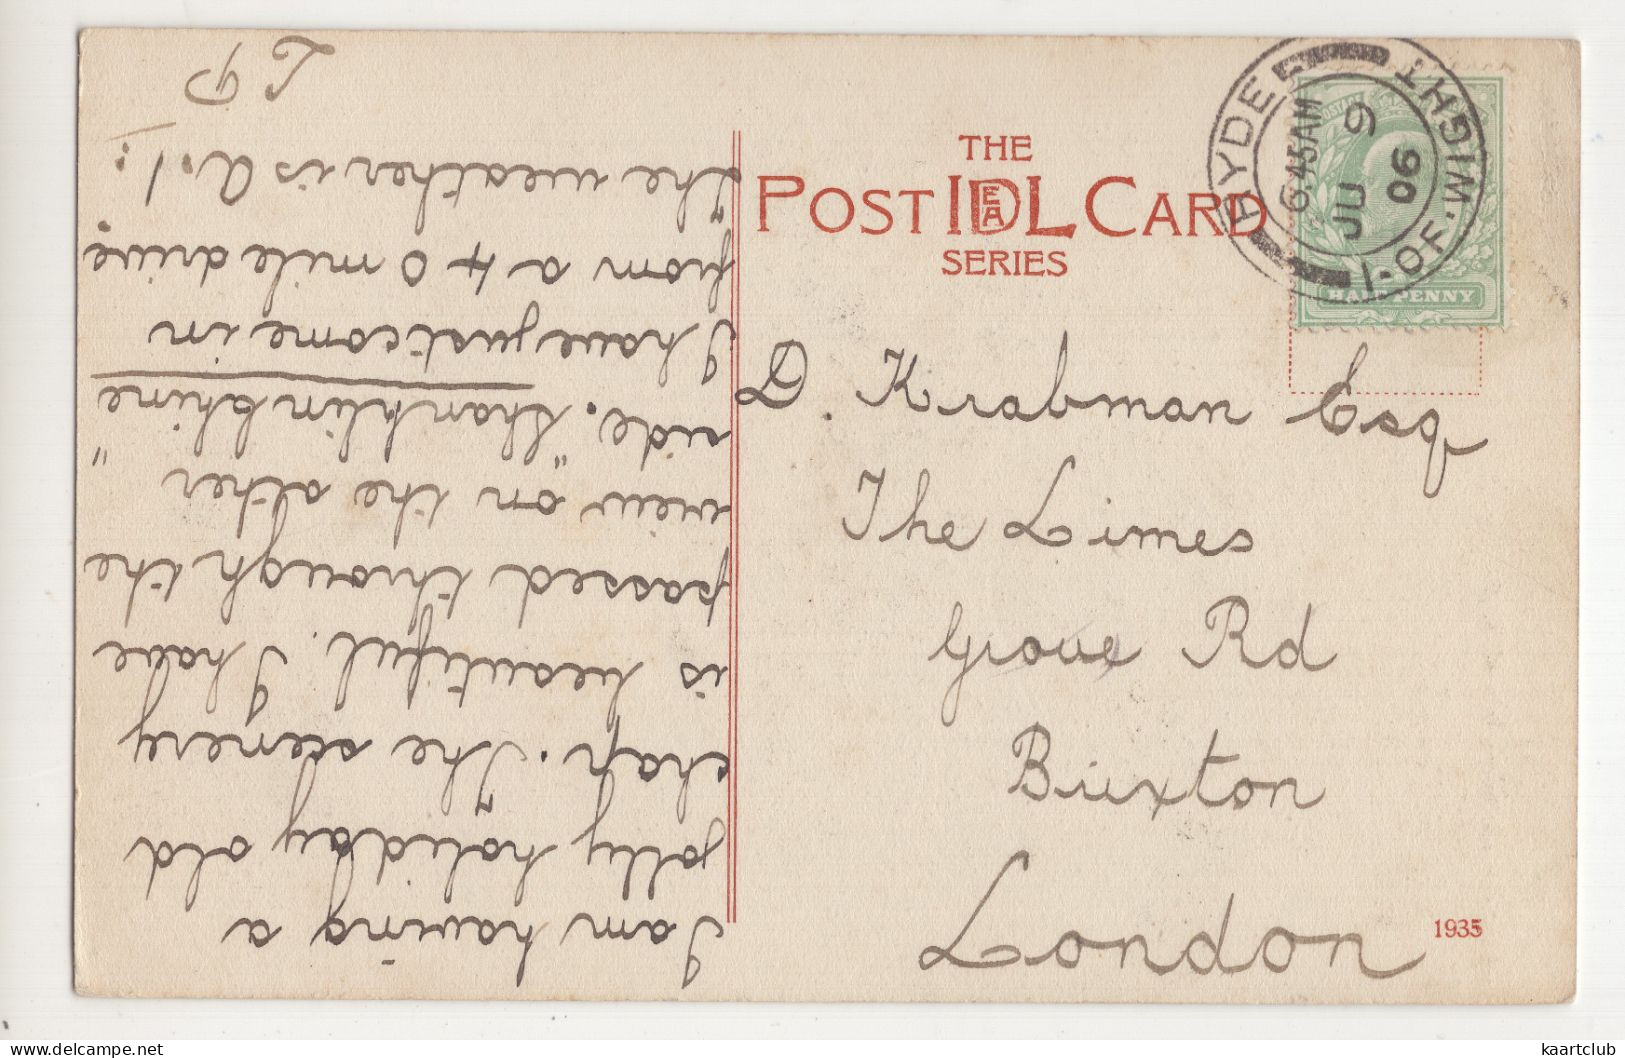 THE
POST IDEAL CARD
SERIES
RYDE
I. OF. WIGHT
6.45AM
JU 9
06
HALF PENNY
D. Krabman Esq
The Limes
Grove Rd
Brixton
London
1935
I am having a
jolly holiday old
chap. The scenery
is beautiful. I have
passed through the
view on the other
side. "Shanklin Chine"
I have just come in
from a 40 mile drive
The weather is A.1:
kaartclub